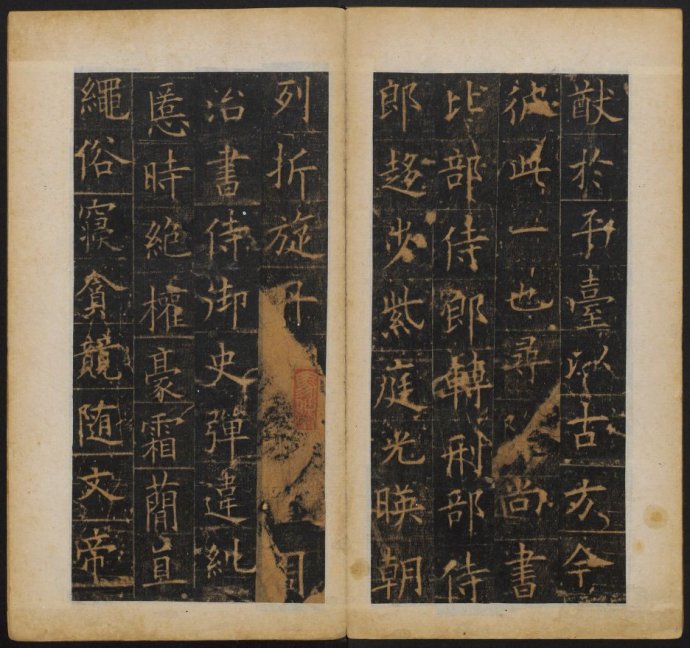 猷於平臺以古方今
彼此一也尋 尚書
比部侍郎轉刑部侍
郎趍步紫庭光暎朝
列折旋丹 目
治書侍御史彈違糺
慝時絶權豪霜蕳直
繩俗寢貪競随文帝